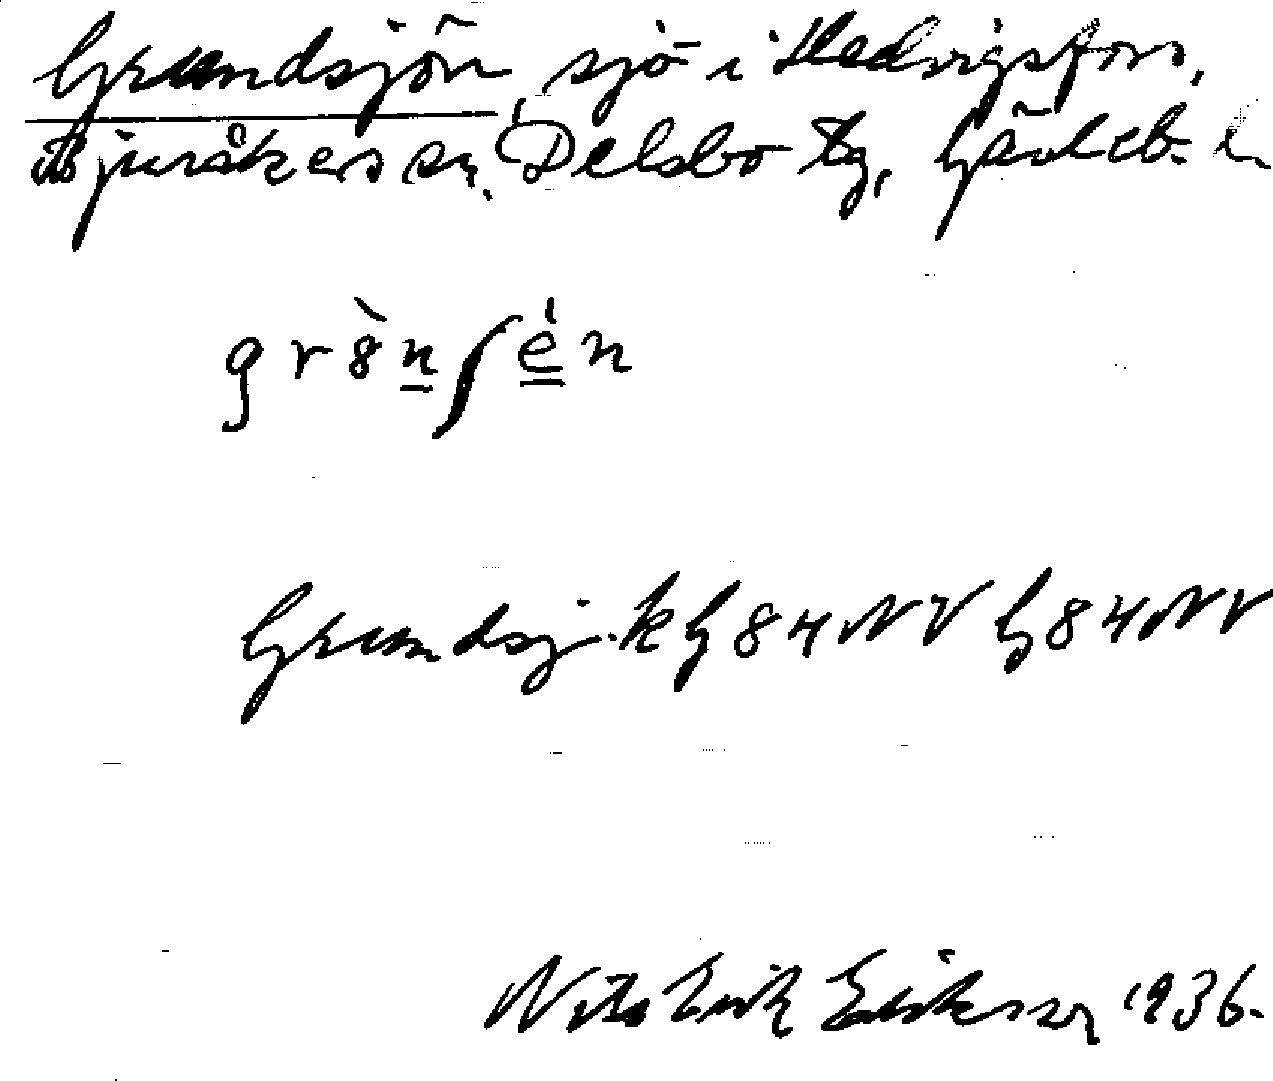 Grundsjön, sjö i Hedvigsfors,
Bjuråkers sn, Delsbo tg, Gävleb. l.
gr8nʃén
Grundsj. k G 84 NV G 84 NV
Nils Erik Eriksson 1936.